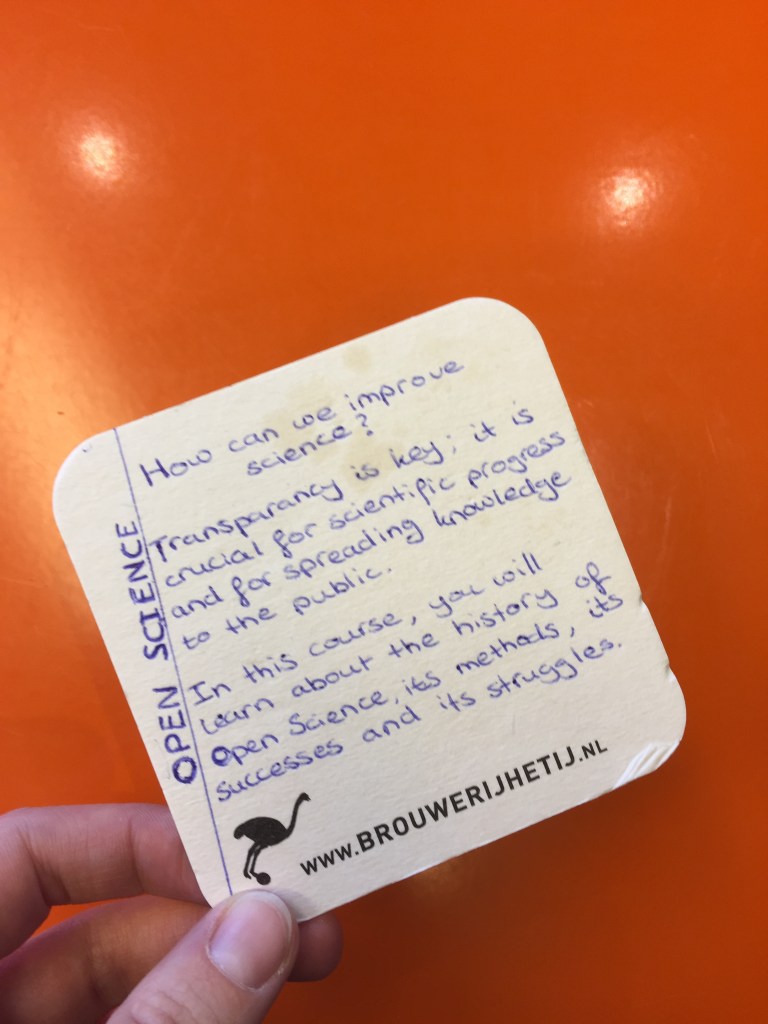 OPEN SCIENCE
How can we improve
science?
Transparancy is key; it is
crucial for scientific progress
and for spreading knowledge
to the public.
In this course, you will
learn about the history of
Open Science, its methods, its
successes and its struggles.
www.BROUWERIJHETIJ.NL